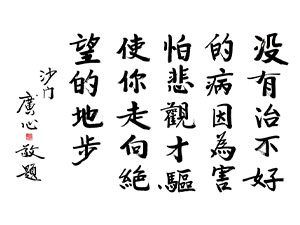 没有治不好
的病因為害
怕悲觀才驅
使你走向絕
望的地步
沙门
廣心敬題